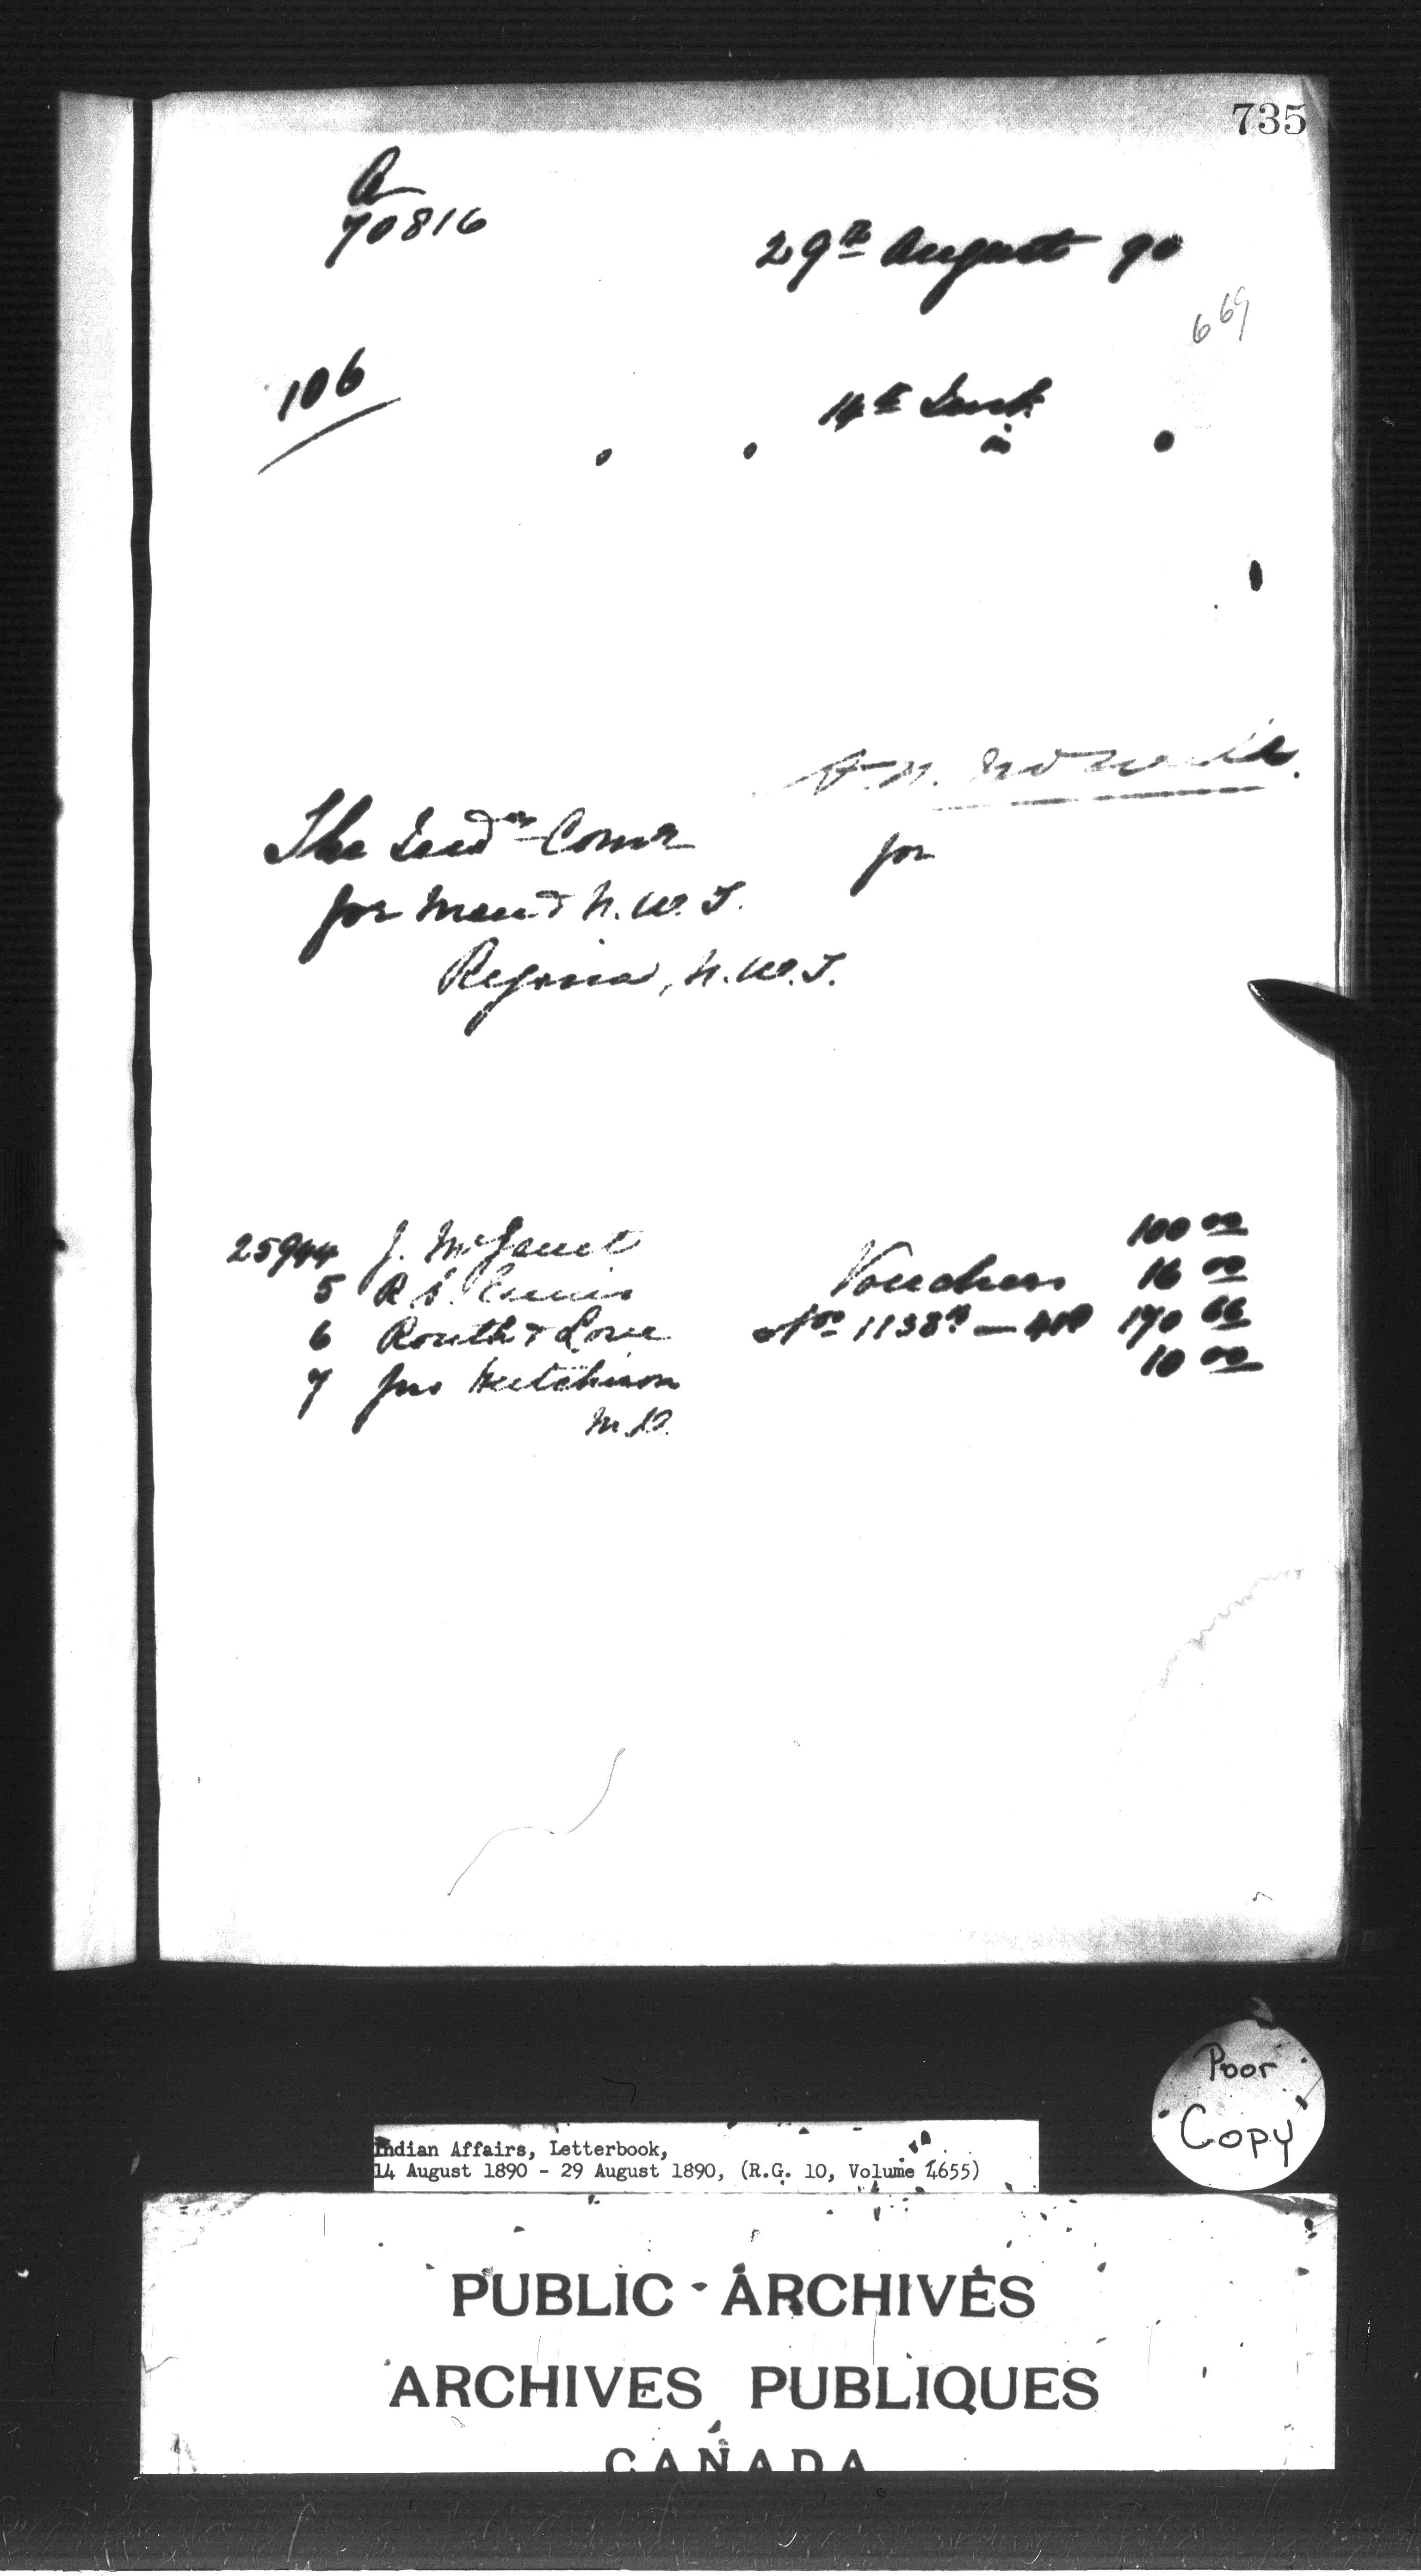 735
A
70816
29th August 90
669
106
14th Inst.
in
The Indn Comr
for
for Man & N.W.T.
Regina, N.W.T.
25944 J. 100 00
5 R. S. Vouchers 16 00
6 Routh & Nos 1138 190 66
7 Jno Hutchison 10 00
M.D.
Poor
Copy
Indian Affairs, Letterbook,
14 August 1890 - 29 August 1890, (R.G. 10, Volume 4655)
PUBLIC ARCHIVES
ARCHIVES PUBLIQUES
CANADA